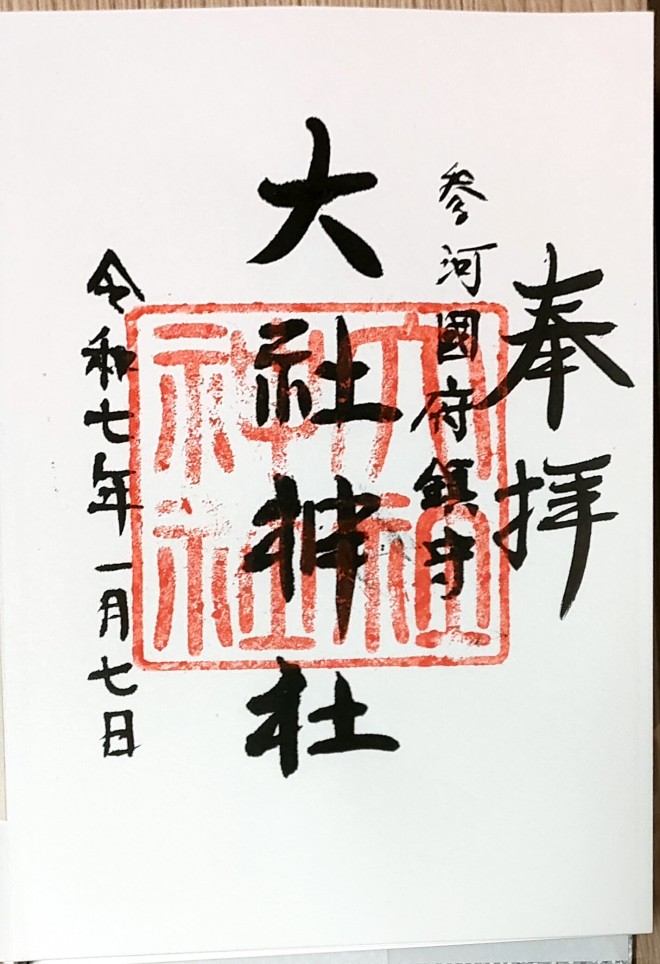 奉拝
参河國府鎮守
大社神社
令和七年一月七日
大社
神社